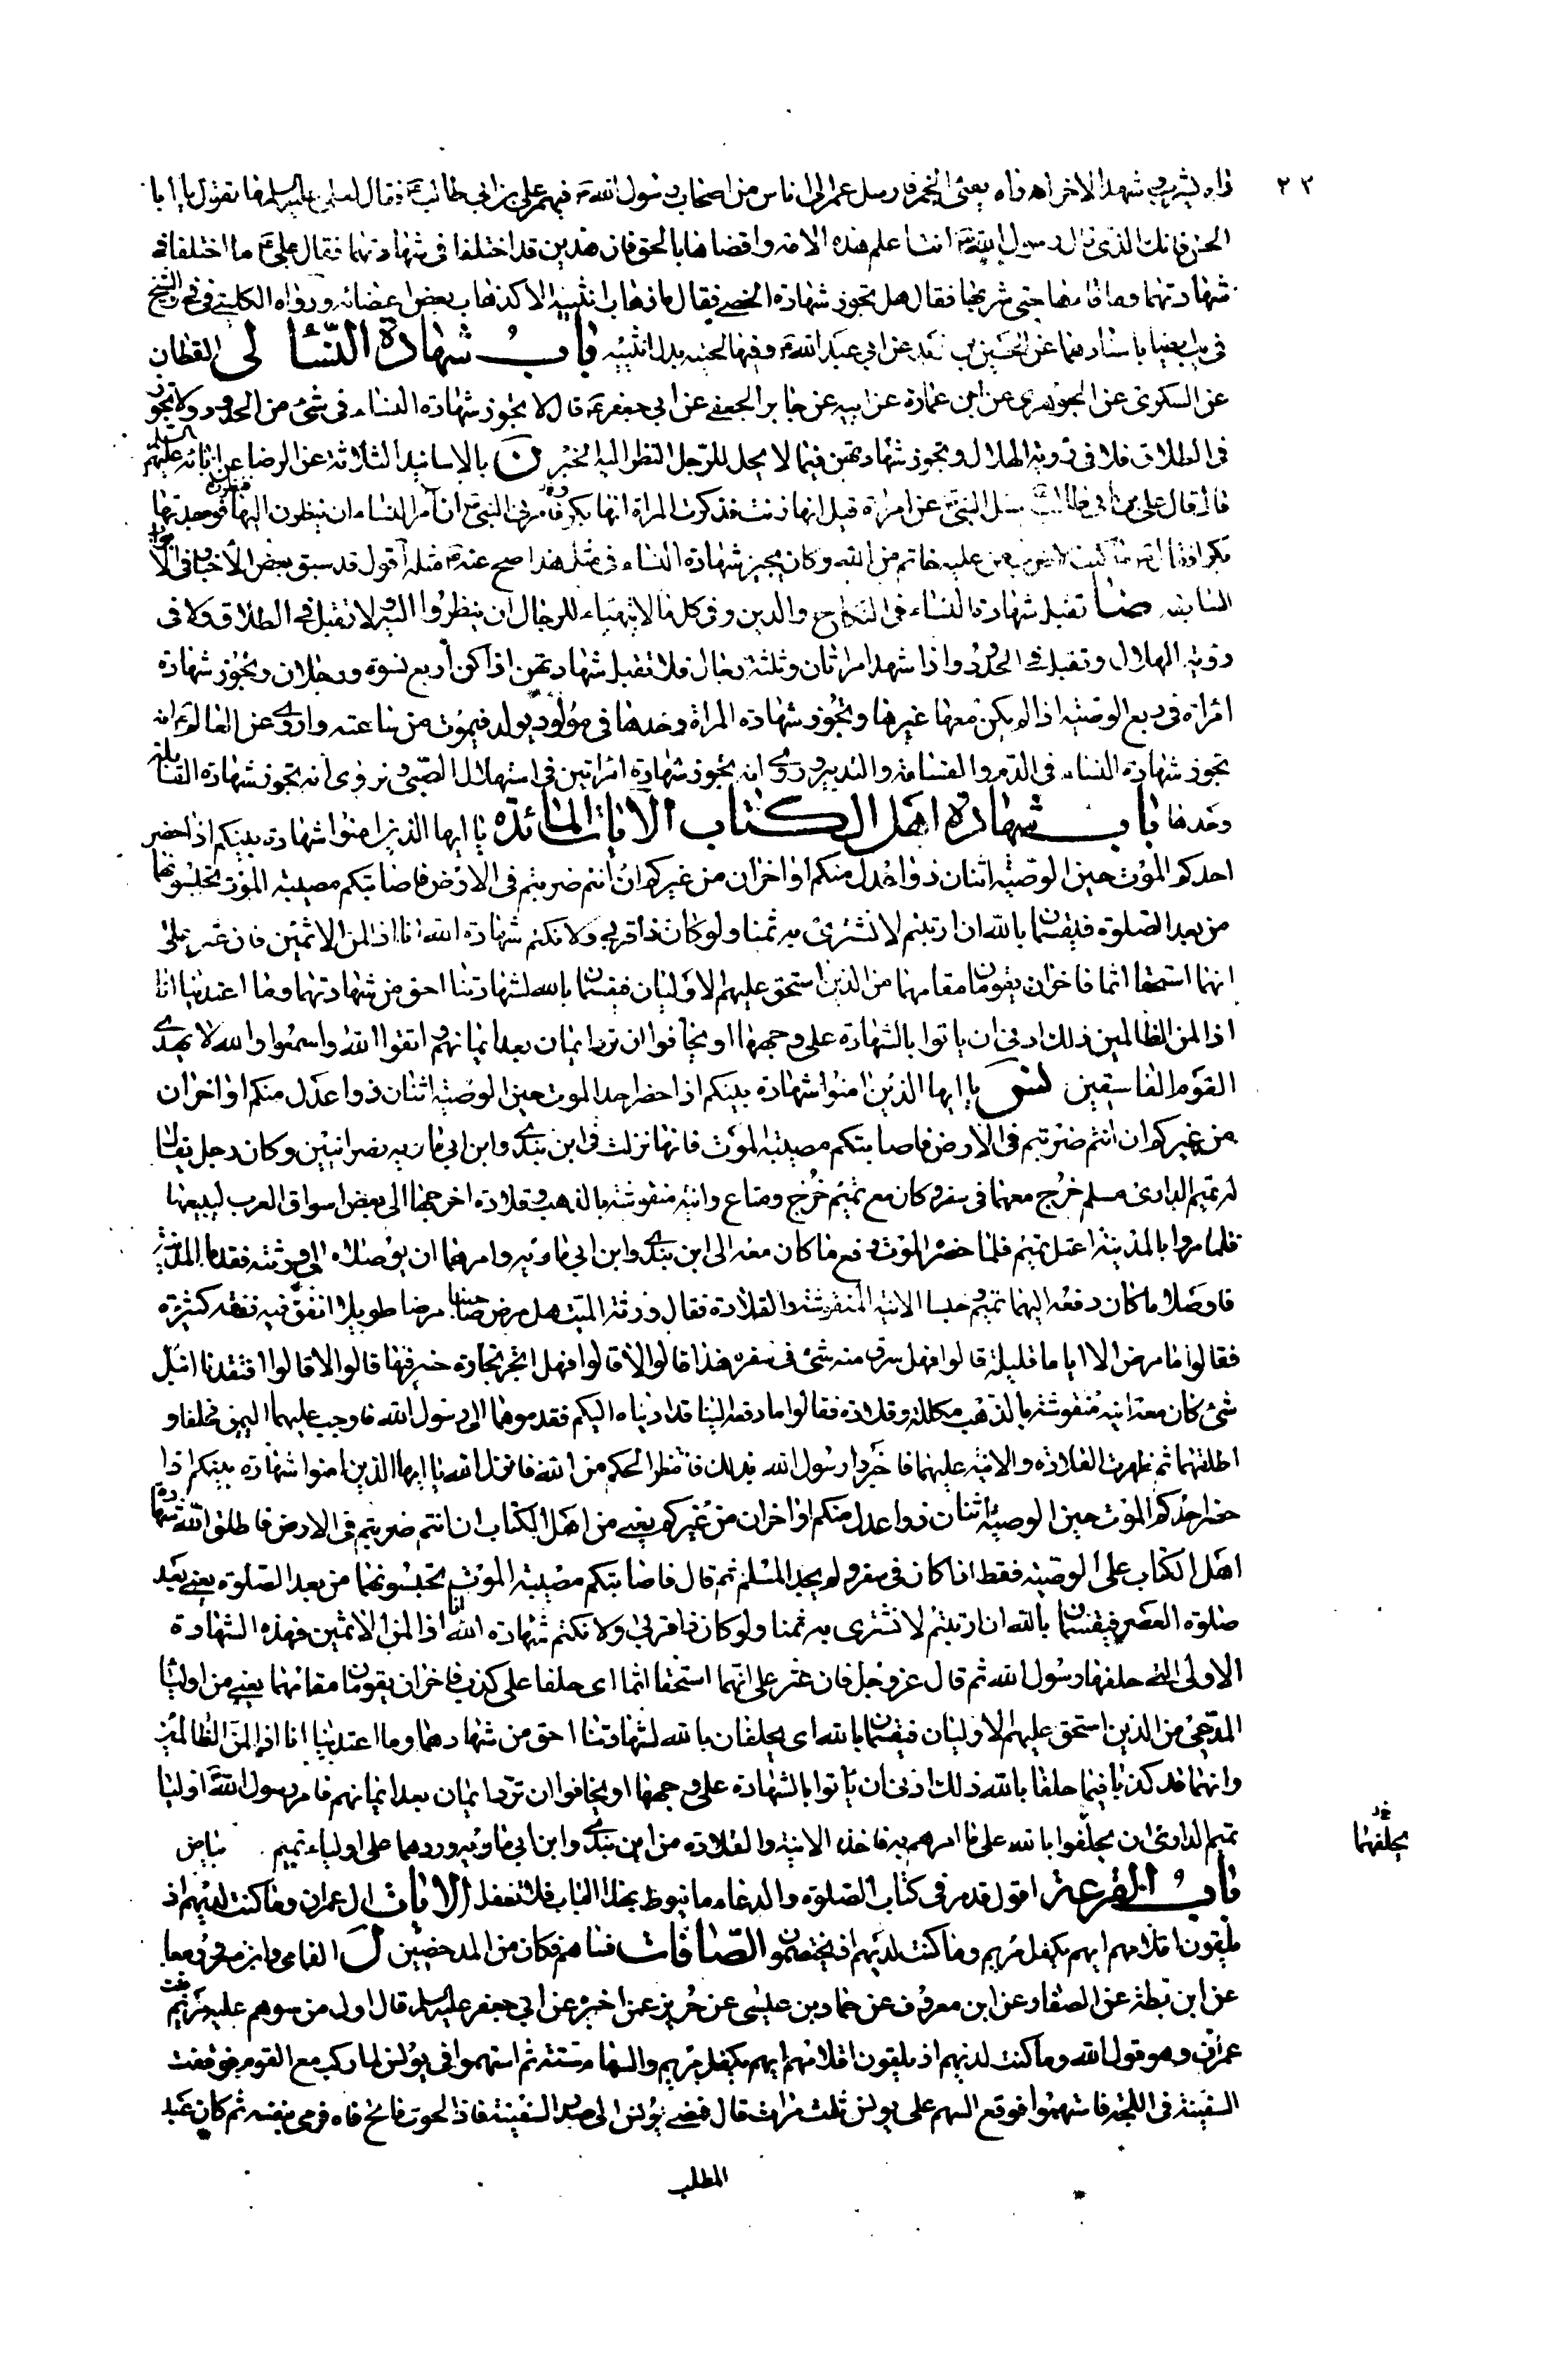 ٢٣
راه يشرب وشهد الاخر انه رآه يعنى الخمر فارسل عمر الى اناس من اصحاب رسول الله ص فيهم على بن ابي طالب ع فقال لعلى عليه السلم ما تقول يا ابا
الحسن فانك الذى قال رسول الله ص انت اعلم هذه الامة واقضاها بالحق فان هذين قد اختلفا فى شهادتهما فقال على ع ما اختلفا فى
شهادتهما وما قاءها حتى شربها فقال هل تجوز شهادة الخصى فقال ما ذهاب انثييه الا كذهاب بعض اعضائه ورواه الكلينى فى فى والشيخ
فى يب باسنادهما عن الحسين بن يزيد عن ابي عبد الله ع وفيها لحيته بدل انثييه باب شهادة النسا لى القطان
عن السكرى عن الجوهرى عن ابن عمارة عن ابيه عن جابر الجعفى عن ابي جعفر ع قال لا تجوز شهادة النساء فى شئ من الحدود ولا تجوز
فى الطلاق ولا فى رؤية الهلال وتجوز شهادتهن فيما لا يحل للرجل النظر اليه الخبر ن بالاسانيد الثلاثة عن الرضا عن ابائه عليهم السلم
قال قال على بن ابي طالب سئل النبى ص عن امراة قيل انها زنت فذكرت المراة انها بكر فامرنى النبى ص ان آمر النساء ان ينظرن اليها فنظرن فوجدنها
بكرا فقال ص ما كنت لاضرب من عليه خاتم من الله وكان يجيز شهادة النساء فى مثل هذا صح عنه ع مثله اقول قد سبق بعض الاخبار فى الابواب
السابقة ضا تقبل شهادة النساء فى النكاح والدين وفى كل ما لا يتهياء للرجال ان ينظروا اليه ولا تقبل فى الطلاق ولا فى
رؤية الهلال وتقبل فى الحدود اذا شهد امراتان وثلثة رجال فلا تقبل شهادتهن اذا كن اربع نسوة ورجلان وتجوز شهادة
امراة فى ربع الوصية اذا لم يكن معها غيرها وتجوز شهادة المراة وحدها فى مولود يولد فيموت من ساعته واروى عن العالم ع انه
تجوز شهادة النساء فى الدم والقسامة والتدبير وروى انه تجوز شهادة امراتين فى استهلال الصبى ونروى انه تجوز شهادة القابلة
وحدها باب شهادة اهل الكتاب الآيات المائدة يا ايها الذين امنوا شهادة بينكم اذا حضر
احدكم الموت حين الوصية اثنان ذوا عدل منكم او اخران من غيركم ان انتم ضربتم فى الارض فاصابتكم مصيبة الموت تحبسونهما
من بعد الصلوة فيقسمان بالله ان ارتبتم لا نشترى به ثمنا ولو كان ذا قربى ولا نكتم شهادة الله انا اذا لمن الاثمين فان عثر على
انهما استحقا اثما فاخران يقومان مقامهما من الذين استحق عليهم الاوليان فيقسمان بالله لشهادتنا احق من شهادتهما وما اعتدينا انا
اذا لمن الظالمين ذلك ادنى ان ياتوا بالشهادة على وجهها او يخافوا ان ترد ايمان بعد ايمانهم واتقوا الله واسمعوا والله لا يهدى
القوم الفاسقين فس يا ايها الذين امنوا شهادة بينكم اذا حضر احد الموت حين الوصية اثنان ذوا عدل منكم او اخران
من غيركم ان انتم ضربتم فى الارض فاصابتكم مصيبة الموت فانها نزلت فى ابن بندى وابن ابي مارية نصرانيين وكان رجل يقال
له تميم الدارى مسلم خرج معهما فى سفر وكان مع تميم خرج ومتاع وانية منقوشة بالذهب وقلادة اخرجها الى بعض اسواق العرب ليبيعها
فلما مروا بالمدينة اعتل تميم فلما حضره الموت دفع ما كان معه الى ابن بندى وابن ابي مارية وامرهما ان يوصلاه الى ورثته فقدما المدينة
فاوصلا ما كان دفعه اليهما تميم وحبسا الانية المنقوشة والقلادة فقال ورثة الميت هل مرض صاحبنا مرضا طويلا انفق فيه نفقة كثيرة
فقالوا ما مرض الا اياما قليلة قالوا فهل سرق منه شئ فى سفره هذا قالوا لا قالوا فهل اتجر تجارة خسر فيها قالوا لا قالوا افتقدنا انبل
شئ كان معه انية منقوشة بالذهب مكللة وقلادة فقالوا ما دفعه الينا قد ادنياه اليكم فقدموهما الى رسول الله فاوجب عليهما اليمين فحلفا و
اطلقهما ثم ظهرت القلادة والانية عليهما فاخبروا رسول الله بذلك فانتظر الحكم من الله فانزل الله يا ايها الذين امنوا شهادة بينكم اذا
حضر احدكم الموت حين الوصية اثنان ذوا عدل منكم او اخران من غيركم يعنى من اهل الكتاب ان انتم ضربتم فى الارض فاطلق الله شهادة
اهل الكتاب على الوصية فقط اذا كان فى سفر ولم يجد المسلم ثم قال فاصابتكم مصيبة الموت تحبسونهما من بعد الصلوة يعنى بعد
صلوة العصر فيقسمان بالله ان ارتبتم لا نشترى به ثمنا ولو كان ذا قربى ولا نكتم شهادة الله انا اذا لمن الاثمين فهذه الشهادة
الاولى التى حلفها رسول الله ثم قال عز وجل فان عثر على انهما استحقا اثما اى حلفا على كذب فاخران يقومان مقامهما يعنى من اولياء
المدعى من الذين استحق عليهم الاوليان فيقسمان بالله اى يحلفان بالله لشهادتنا احق من شهادتهما وما اعتدينا انا اذا لمن الظالمين
وانهما قد كذبا فيما حلفا بالله ذلك ادنى ان ياتوا بالشهادة على وجهها او يخافوا ان ترد ايمان بعد ايمانهم فامر رسول الله ص اوليا
تميم الدارى ان يحلفوا بالله على ما امرهم به فاخذ الانية والقلادة من ابن بندى وابن ابي مارية وردهما على اولياء تميم بياض
يحلفهما
باب القرعة اقول قد مر فى كتاب الصلوة والدعاء ما ينوط بهذا الباب فلا تغفل الايات ال عمران وما كنت لديهم اذ
يلقون اقلامهم ايهم يكفل مريم وما كنت لديهم اذ يختصمون والصافات فساهم فكان من المدحضين ل الفامى وابن مسرور معا
عن ابن بطة عن الصفار عن ابن معروف عن حماد بن عيسى عن حريز عمن اخبره عن ابي جعفر عليه السلم قال اول من سوهم عليه مريم بنت
عمران وهو قول الله وما كنت لديهم اذ يلقون اقلامهم ايهم يكفل مريم والسهام ستة ثم استهموا فى يونس لما ركب مع القوم فوقفت
السفينة فى اللجة فاستهموا فوقع السهم على يونس ثلث مرات قال فمضى يونس الى صدر السفينة فاذا الحوت فاتح فاه فرمى بنفسه ثم كان عبد
المطلب